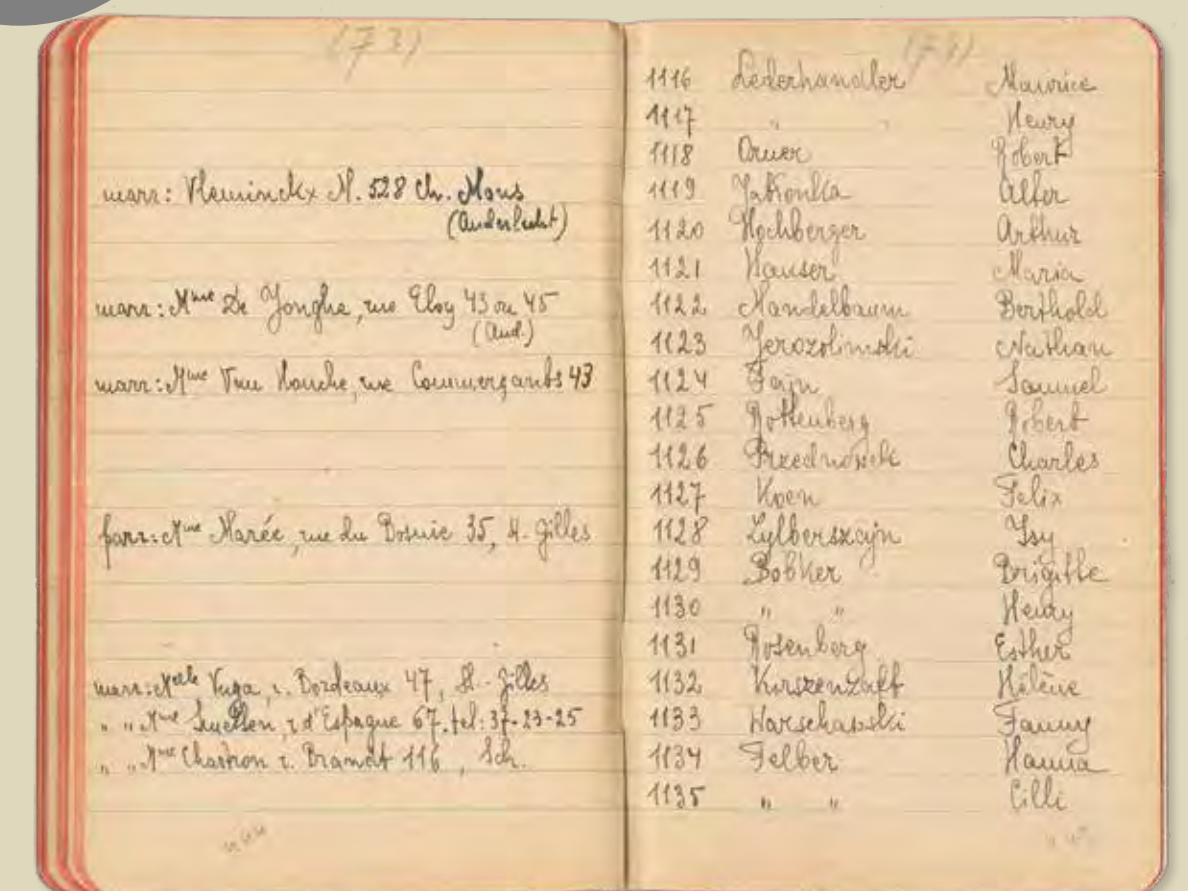 (73)
marr: Vleminckx N. 528 Ch. Mons
(Anderlecht)
marr: Mme De Jonghe, rue Eloy 43 ou 45
(And.)
marr: Mme Van Houche, rue Commerçants 43
parr: Mme Marée, rue du Bosnie 35, St. Gilles
marr: Melle Vuga, r. Bordeaux 47, St-Gilles
" " Mme r. d'Espagne 67. tel: 37-23-25
" " Mme r. Brandt 116, Sch.
1116 Lederhandler Maurice
1117 " " Henry
1118 Robert
1119 Jablonka Alter
1120 Hochberger Arthur
1121 Hauser Maria
1122 Mandelbaum Berthold
1123 Jerozolimski Nathan
1124 Fajn Samuel
1125 Rottenberg Robert
1126 Przednowek Charles
1127 Koen Felix
1128 Zylberszajn Isy
1129 Bobker Brigitte
1130 " " Henry
1131 Rosenberg Esther
1132 Kirszenzaft Hélène
1133 Warschawski Fanny
1134 Felber Hanna
1135 " " Cilli